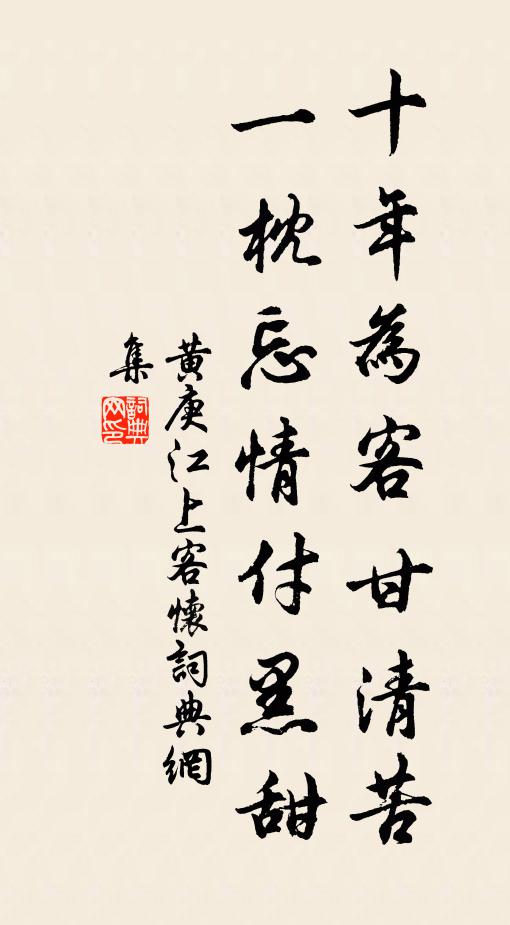 十年為客甘清苦
一枕忘情付黑甜
黃庚江上客懷詞典網
集
詞典網印